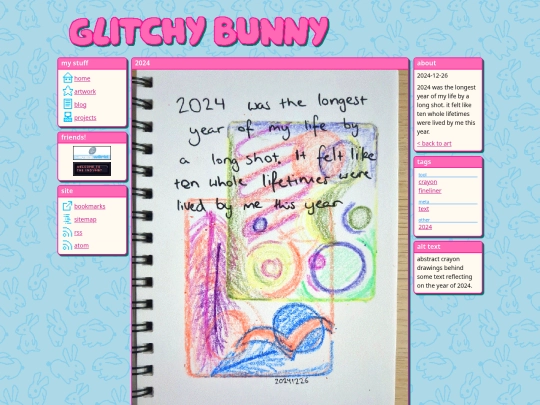 GLITCHY BUNNY
my stuff
home
artwork
blog
projects
friends!
WELCOME TO
site
bookmarks
sitemap
rss
atom
2024
2024 was the longest
year of my life by
a long shot. It felt like
ten whole lifetimes were
lived by me this year
20241226
about
2024-12-26
2024 was the longest
year of my life by a
long shot. it felt like
ten whole lifetimes
were lived by me this
year.
< back to art
tags
crayon
fineliner
meta
text
other
2024
alt text
abstract crayon
drawings behind
some text reflecting
on the year of 2024.